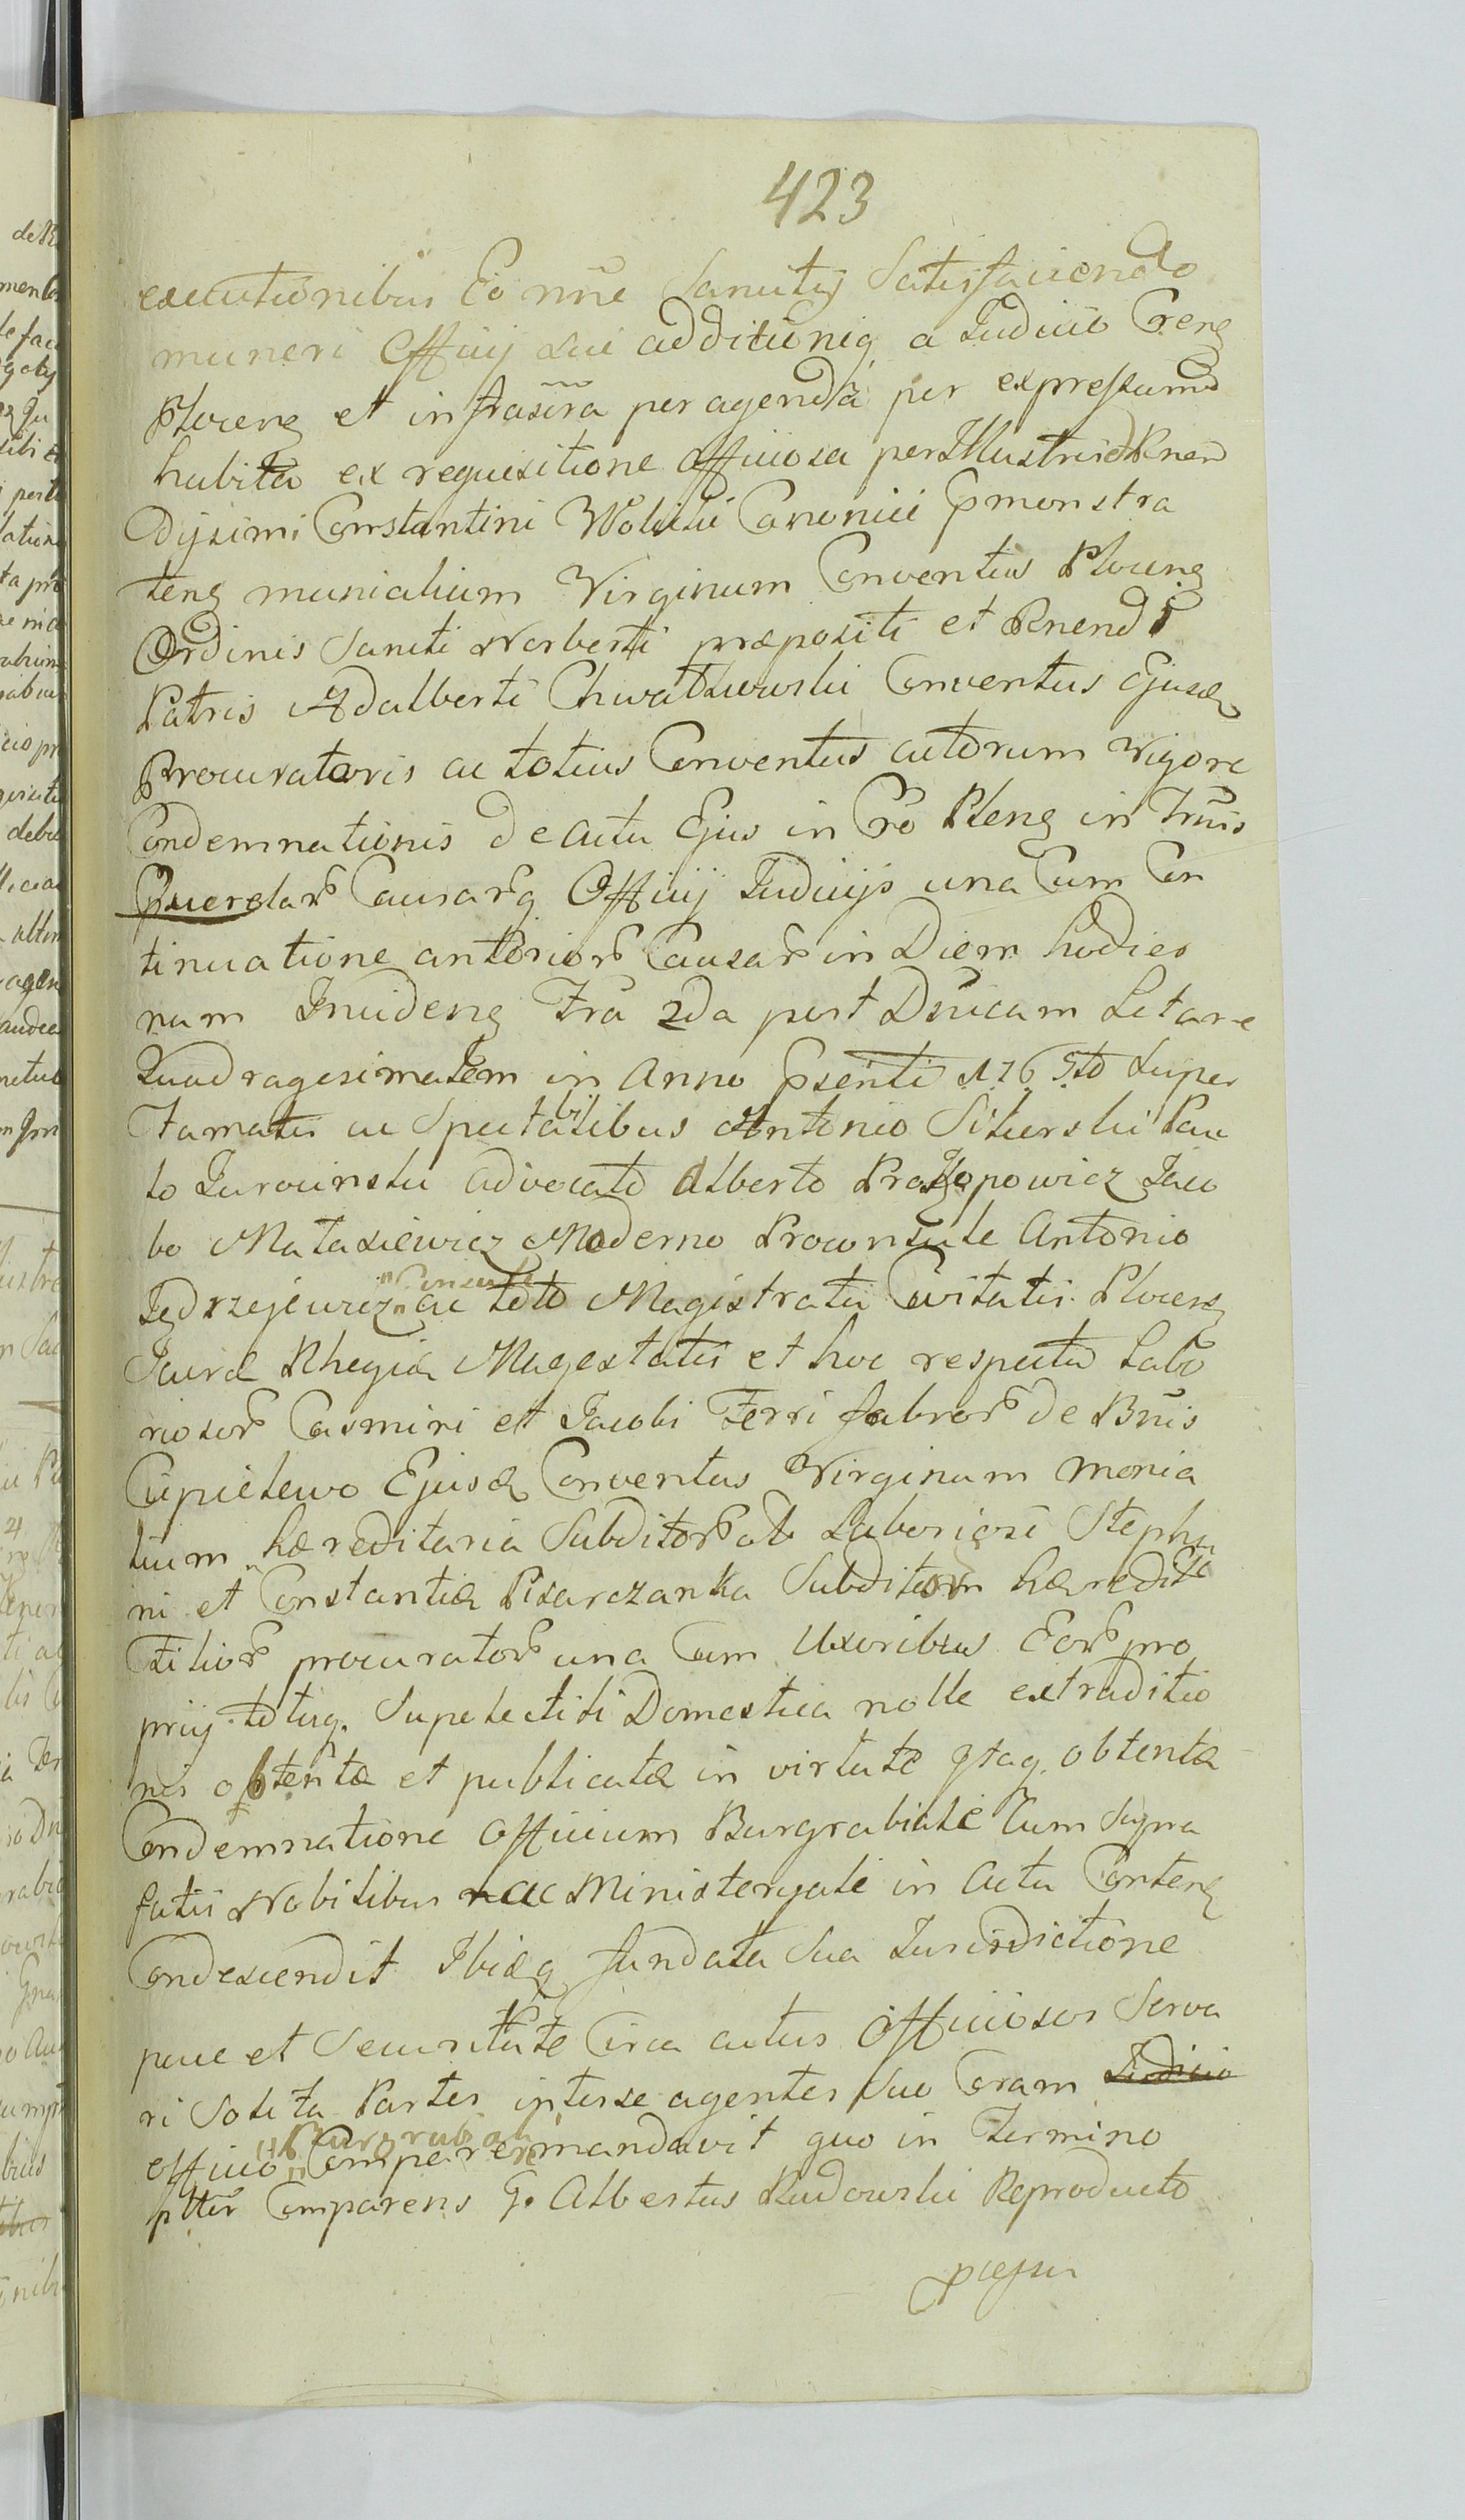 423
executionibus Eo nñe Sancitis Satisfaciendo
muneri Officij sui additionię a Judicio Creñ
Plocenę et infrascra peragenda per expressum
habita ex requisitione officiosa per Illustris Rnen
dissimi Constantini Wolicki Canonici Pmonstra
tenę munialium Virginum Conventus Plocenę
Ordinis Sancti Norberti præpositi et Rnendi
Patris Adalberti Chwalkowski Conventus Ejusd
Procuratoris ac totius Conventus actorum vigore
Condemnationis de actu Ejus in Cro Plenę in Trñis
Querelar Causarq Officij Judicijs una Cum Con
tinuatione anterior Causar in Diem hodier
num Incidenę Fra 2da post Dñicam Letare
Quadragesimalem in Anno Psenti 1765to super
Famatis ac Spectabilibus Antonio Sikorski Pau
lo Jarocinski advocato Alberto Prokopowicz Jaco
bo Mataxiewicz Moderno Proconsule Antonio
Jędrzejewicz Consule ac toto Magistratu Civitatis Plocenę
Sacræ Rhegiæ Magestatis et hoc respectu Labo
riosor Casmiri et Jacobi Ferri fabror de Bñis
Ciupielewo Ejusd Conventus Virginum Monia
lium hæreditaria Subditor ab Laboriosi Stepha
ni et Constantiæ Pisarczanka Subditor hæredita
Filior procurator una Cum Uxoribus Eor pro
prijs totaq. Supelectili Domestica nolle extraditio
nis obtentæ et publicatæ in virtute qtaq. obtentæ
Condemnatione Officium Burgrabiale Cum Supra
fatis Nobilibus ac Ministeryale in actu Contenę
Condescendit Ibidq fundata sua Jurisdictione
pace et Securitate Circa actus Officiosos Serva
ri Solita Partes interse agentes suo Coram Judicio
officio Burgrabiali Comparere mandavit quo in Termino
plttr Comparens G. Albertus Rudowski Reproducto